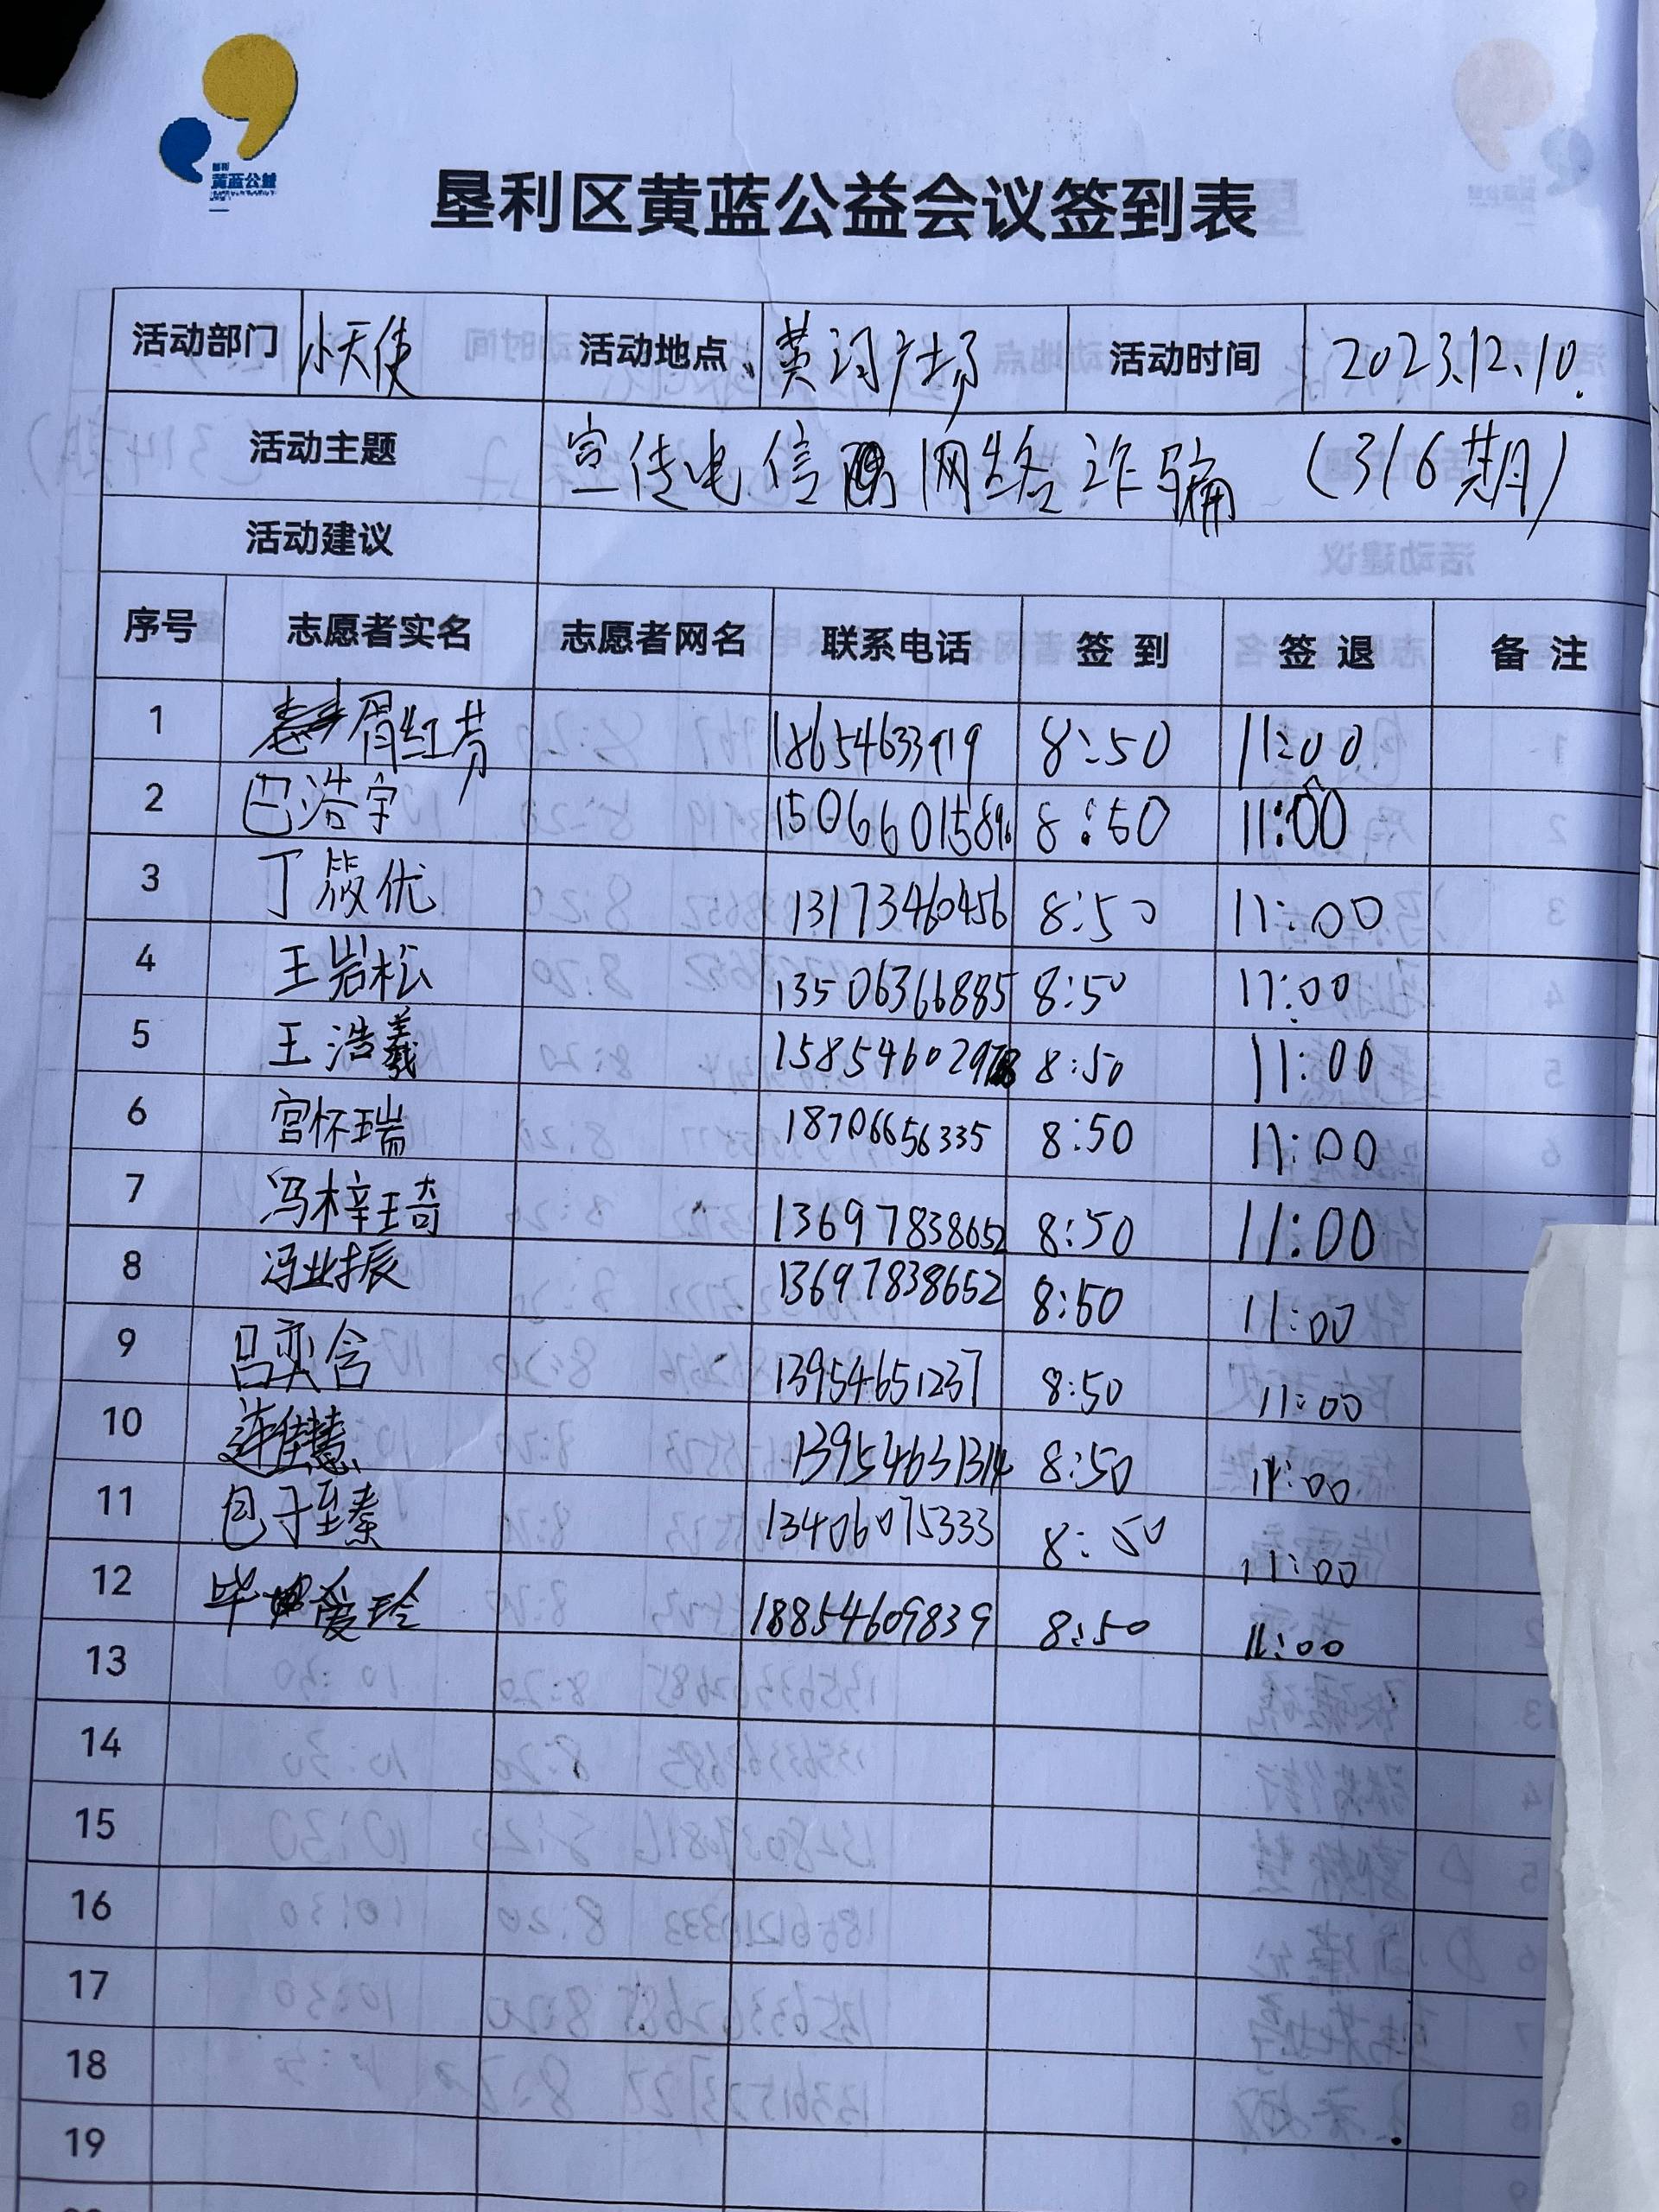 黄蓝公益
垦利区黄蓝公益会议签到表
活动部门 小天使 活动地点 黄河广场 活动时间 2023.12.10.
活动主题 宣传电信网络诈骗 (316期)
活动建议
序号 志愿者实名 志愿者网名 联系电话 签到 签退 备注
1 胥红芳 18654633919 8:50 11:00
2 巴浩宇 15066015896 8:50 11:00
3 丁筱优 13173460456 8:50 11:00
4 王岩松 13506366885 8:50 11:00
5 王浩羲 8:50 11:00
6 宫怀瑞 18706656335 8:50 11:00
7 冯梓琦 13697838652 8:50 11:00
8 冯业振 13697838652 8:50 11:00
9 吕奕含 13954651237 8:50 11:00
10 连佳慧 13954631314 8:50 11:00
11 包于至秦 13406075333 8:50 11:00
12 毕爱玲 18854609839 8:50 11:00
13
14
15
16
17
18
19